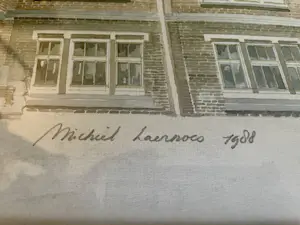 Michiel Laernoes 1988